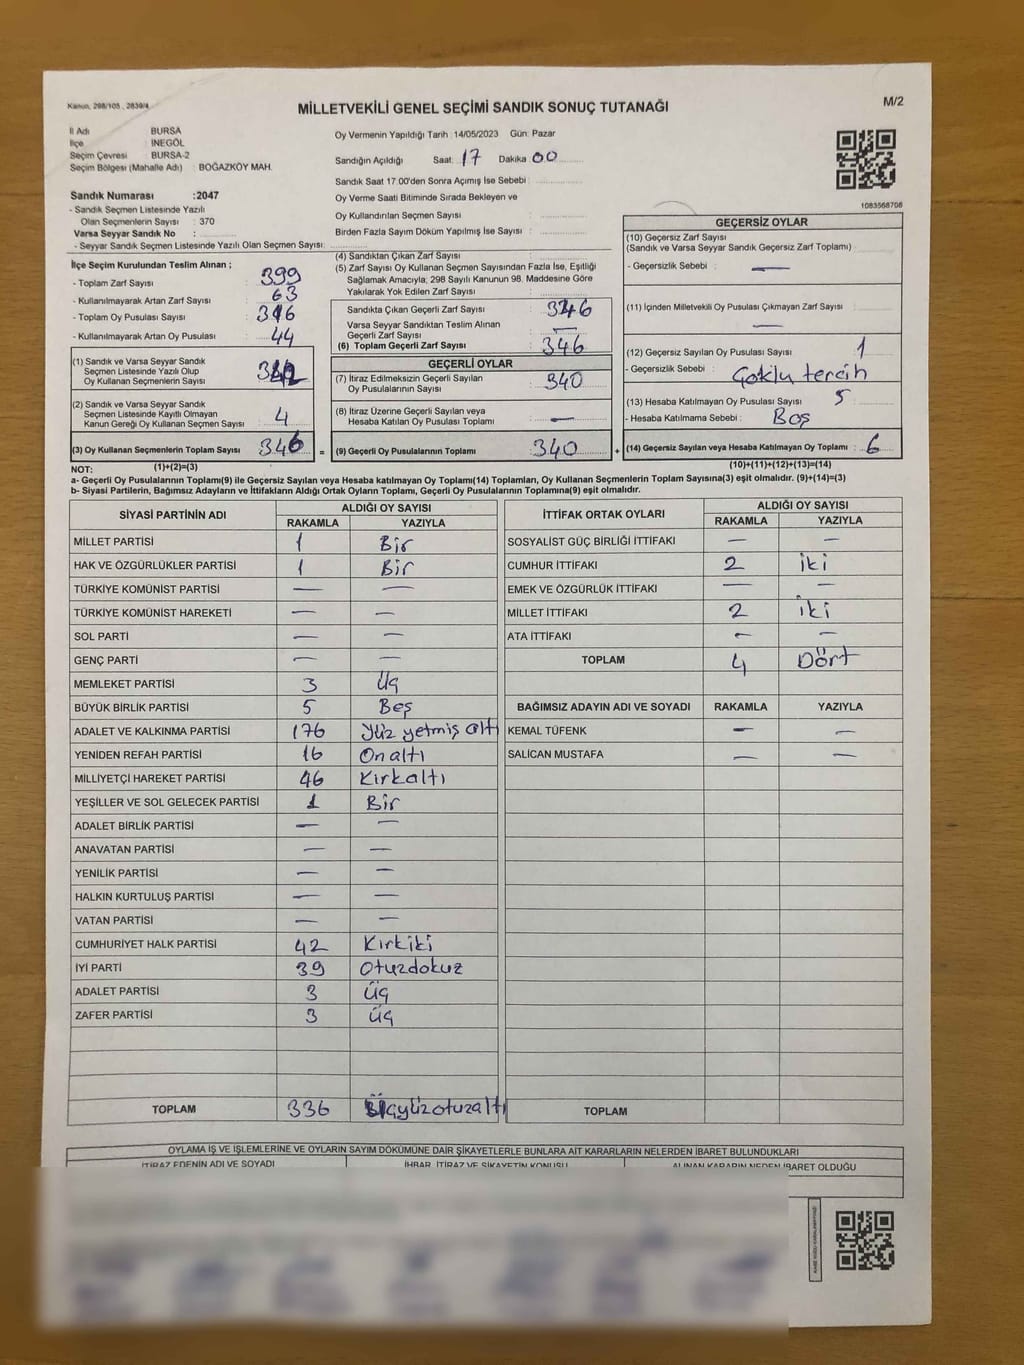 Kanun, 298/105 , 2839/4
MİLLETVEKİLİ GENEL SEÇİMİ SANDIK SONUÇ TUTANAĞI
M/2
İl Adı BURSA
İlçe İNEGÖL
Seçim Çevresi BURSA-2
Seçim Bölgesi (Mahalle Adı) : BOĞAZKÖY MAH.
Sandık Numarası :2047
- Sandık Seçmen Listesinde Yazılı
Olan Seçmenlerin Sayısı : 370
Varsa Seyyar Sandık No :
- Seyyar Sandık Seçmen Listesinde Yazılı Olan Seçmen Sayısı:
Oy Vermenin Yapıldığı Tarih :14/05/2023 Gün: Pazar
Sandığın Açıldığı Saat: 17 Dakika 00
Sandık Saat 17.00'den Sonra Açımış İse Sebebi :
Oy Verme Saati Bitiminde Sırada Bekleyen ve
Oy Kullandırılan Seçmen Sayısı :
Birden Fazla Sayım Döküm Yapılmış İse Sayısı :
1083568708
İlçe Seçim Kurulundan Teslim Alınan ;
- Toplam Zarf Sayısı : 399
- Kullanılmayarak Artan Zarf Sayısı : 63
- Toplam Oy Pusulası Sayısı :
- Kullanılmayarak Artan Oy Pusulası : 44
(1) Sandık ve Varsa Seyyar Sandık
Seçmen Listesinde Yazılı Olup
Oy Kullanan Seçmenlerin Sayısı :
(2) Sandık ve Varsa Seyyar Sandık
Seçmen Listesinde Kayıtlı Olmayan
Kanun Gereği Oy Kullanan Seçmen Sayısı : 4
(3) Oy Kullanan Seçmenlerin Toplam Sayısı : 346 =
(4) Sandıktan Çıkan Zarf Sayısı :
(5) Zarf Sayısı Oy Kullanan Seçmen Sayısından Fazla İse, Eşitliği
Sağlamak Amacıyla; 298 Sayılı Kanunun 98. Maddesine Göre
Yakılarak Yok Edilen Zarf Sayısı :
Sandıkta Çıkan Geçerli Zarf Sayısı : 346
Varsa Seyyar Sandıktan Teslim Alınan
Geçerli Zarf Sayısı : —
(6) Toplam Geçerli Zarf Sayısı : 346
GEÇERLİ OYLAR
(7) İtiraz Edilmeksizin Geçerli Sayılan
Oy Pusulalarının Sayısı : 340
(8) İtiraz Üzerine Geçerli Sayılan veya
Hesaba Katılan Oy Pusulası Toplamı : —
(9) Geçerli Oy Pusulalarının Toplamı : 340 +
GEÇERSİZ OYLAR
(10) Geçersiz Zarf Sayısı
(Sandık ve Varsa Seyyar Sandık Geçersiz Zarf Toplamı) :
- Geçersizlik Sebebi : —
(11) İçinden Milletvekili Oy Pusulası Çıkmayan Zarf Sayısı :
—
(12) Geçersiz Sayılan Oy Pusulası Sayısı : 1
- Geçersizlik Sebebi : Çoklu tercih
(13) Hesaba Katılmayan Oy Pusulası Sayısı : 5
- Hesaba Katılmama Sebebi : Boş
(14) Geçersiz Sayılan veya Hesaba Katılmayan Oy Toplamı : 6
NOT: (1)+(2)=(3)
(10)+(11)+(12)+(13)=(14)
a- Geçerli Oy Pusulalarının Toplamı(9) ile Geçersiz Sayılan veya Hesaba katılmayan Oy Toplamı(14) Toplamları, Oy Kullanan Seçmenlerin Toplam Sayısına(3) eşit olmalıdır. (9)+(14)=(3)
b- Siyasi Partilerin, Bağımsız Adayların ve İttifakların Aldığı Ortak Oyların Toplamı, Geçerli Oy Pusulalarının Toplamına(9) eşit olmalıdır.
SİYASİ PARTİNİN ADI ALDIĞI OY SAYISI
RAKAMLA YAZIYLA
MİLLET PARTİSİ 1 Bir
HAK VE ÖZGÜRLÜKLER PARTİSİ 1 Bir
TÜRKİYE KOMÜNİST PARTİSİ — —
TÜRKİYE KOMÜNİST HAREKETİ — —
SOL PARTİ — —
GENÇ PARTİ — —
MEMLEKET PARTİSİ 3 Üç
BÜYÜK BİRLİK PARTİSİ 5 Beş
ADALET VE KALKINMA PARTİSİ 176 Yüz yetmiş altı
YENİDEN REFAH PARTİSİ 16 Onaltı
MİLLİYETÇİ HAREKET PARTİSİ 46 Kırkaltı
YEŞİLLER VE SOL GELECEK PARTİSİ 1 Bir
ADALET BİRLİK PARTİSİ — —
ANAVATAN PARTİSİ — —
YENİLİK PARTİSİ — —
HALKIN KURTULUŞ PARTİSİ — —
VATAN PARTİSİ — —
CUMHURİYET HALK PARTİSİ 42 Kırkiki
İYİ PARTİ 39 Otuzdokuz
ADALET PARTİSİ 3 Üç
ZAFER PARTİSİ 3 Üç
TOPLAM 336 Üçyüzotuzaltı
İTTİFAK ORTAK OYLARI ALDIĞI OY SAYISI
RAKAMLA YAZIYLA
SOSYALİST GÜÇ BİRLİĞİ İTTİFAKI — —
CUMHUR İTTİFAKI 2 İki
EMEK VE ÖZGÜRLÜK İTTİFAKI — —
MİLLET İTTİFAKI 2 İki
ATA İTTİFAKI — —
TOPLAM 4 Dört
BAĞIMSIZ ADAYIN ADI VE SOYADI RAKAMLA YAZIYLA
KEMAL TÜFENK — —
SALİCAN MUSTAFA — —
TOPLAM
OYLAMA İŞ VE İŞLEMLERİNE VE OYLARIN SAYIM DÖKÜMÜNE DAİR ŞİKAYETLERLE BUNLARA AİT KARARLARIN NELERDEN İBARET BULUNDUKLARI
İTİRAZ EDENİN ADI VE SOYADI İHBAR, İTİRAZ VE ŞİKAYETİN KONUSU ALINAN KARARIN NEDEN İBARET OLDUĞU